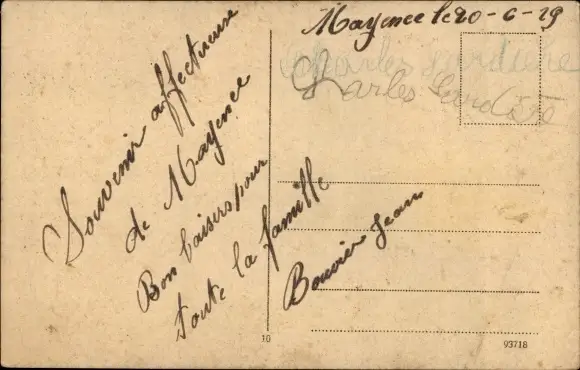 Mayence le 20-6-29
Souvenir affectueux
de Mayence
Bon baisers pour
toute la famille
Bouvier Jean
Charles
Charles
10
93718